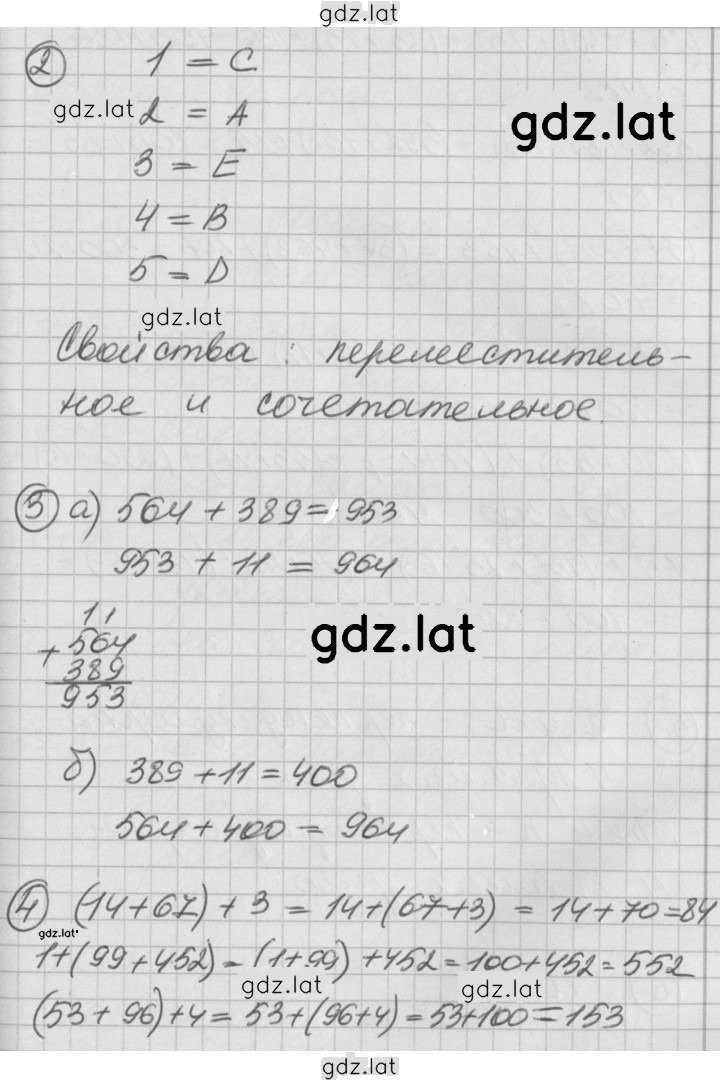 gdz.lat
2 1 = C
gdz.lat 2 = A
gdz.lat
3 = E
4 = B
5 = D
gdz.lat
Свойства : переместитель-
ное и сочетательное.
3 а) 564 + 389 = 953
953 + 11 = 964
11
+ 564
389
953
gdz.lat
б) 389 + 11 = 400
564 + 400 = 964
4 (14+67) + 3 = 14+(67+3) = 14+70=84
gdz.lat
1+(99+452) = (1+99) +452=100+452=552
gdz.lat gdz.lat
(53 + 96)+4= 53+(96+4)=53+100=153
gdz.lat